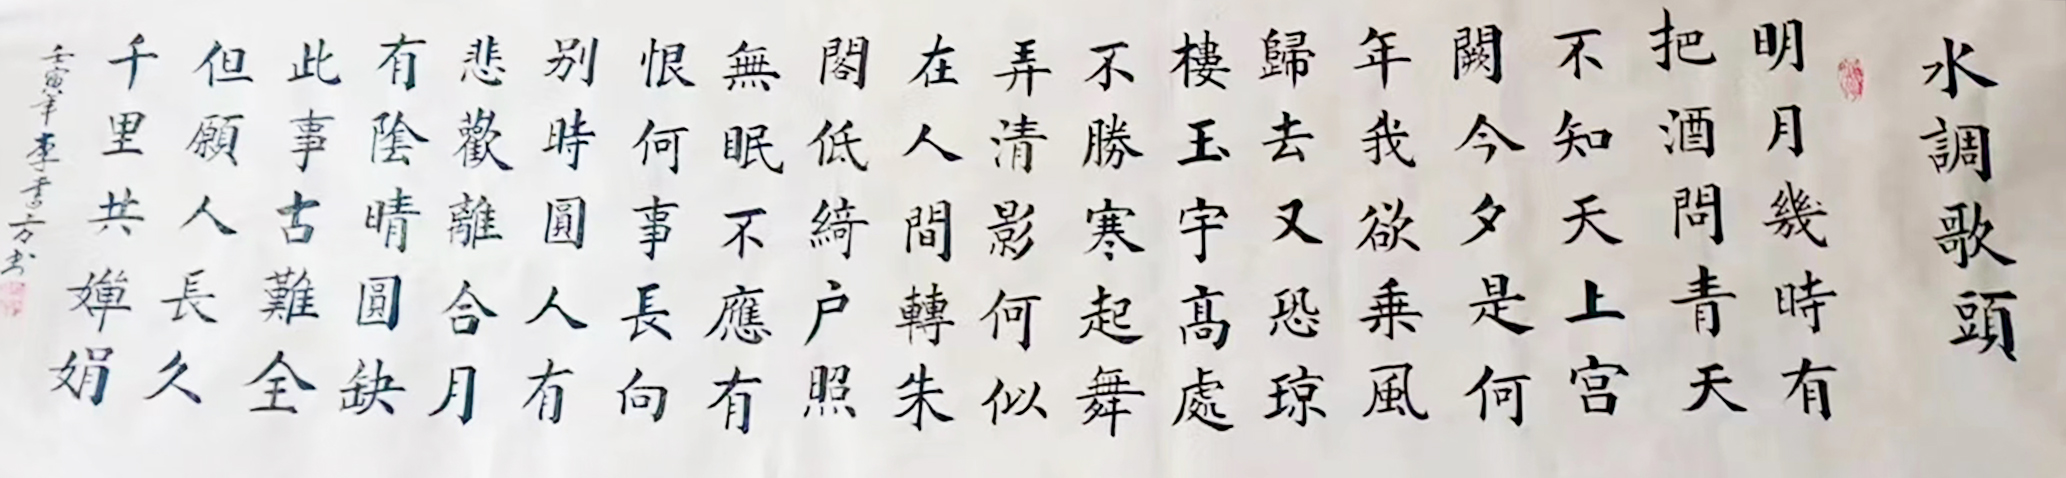 水調歌頭
明月幾時有
把酒問青天
不知天上宫
闕今夕是何
年我欲乗風
歸去又恐琼
樓玉宇髙處
不勝寒起舞
弄清影何似
在人間轉朱
閣低綺户照
無眠不應有
恨何事長向
别時圓人有
悲歡離合月
有陰晴圓缺
此事古難全
但願人長久
千里共嬋娟
壬寅年李書方书